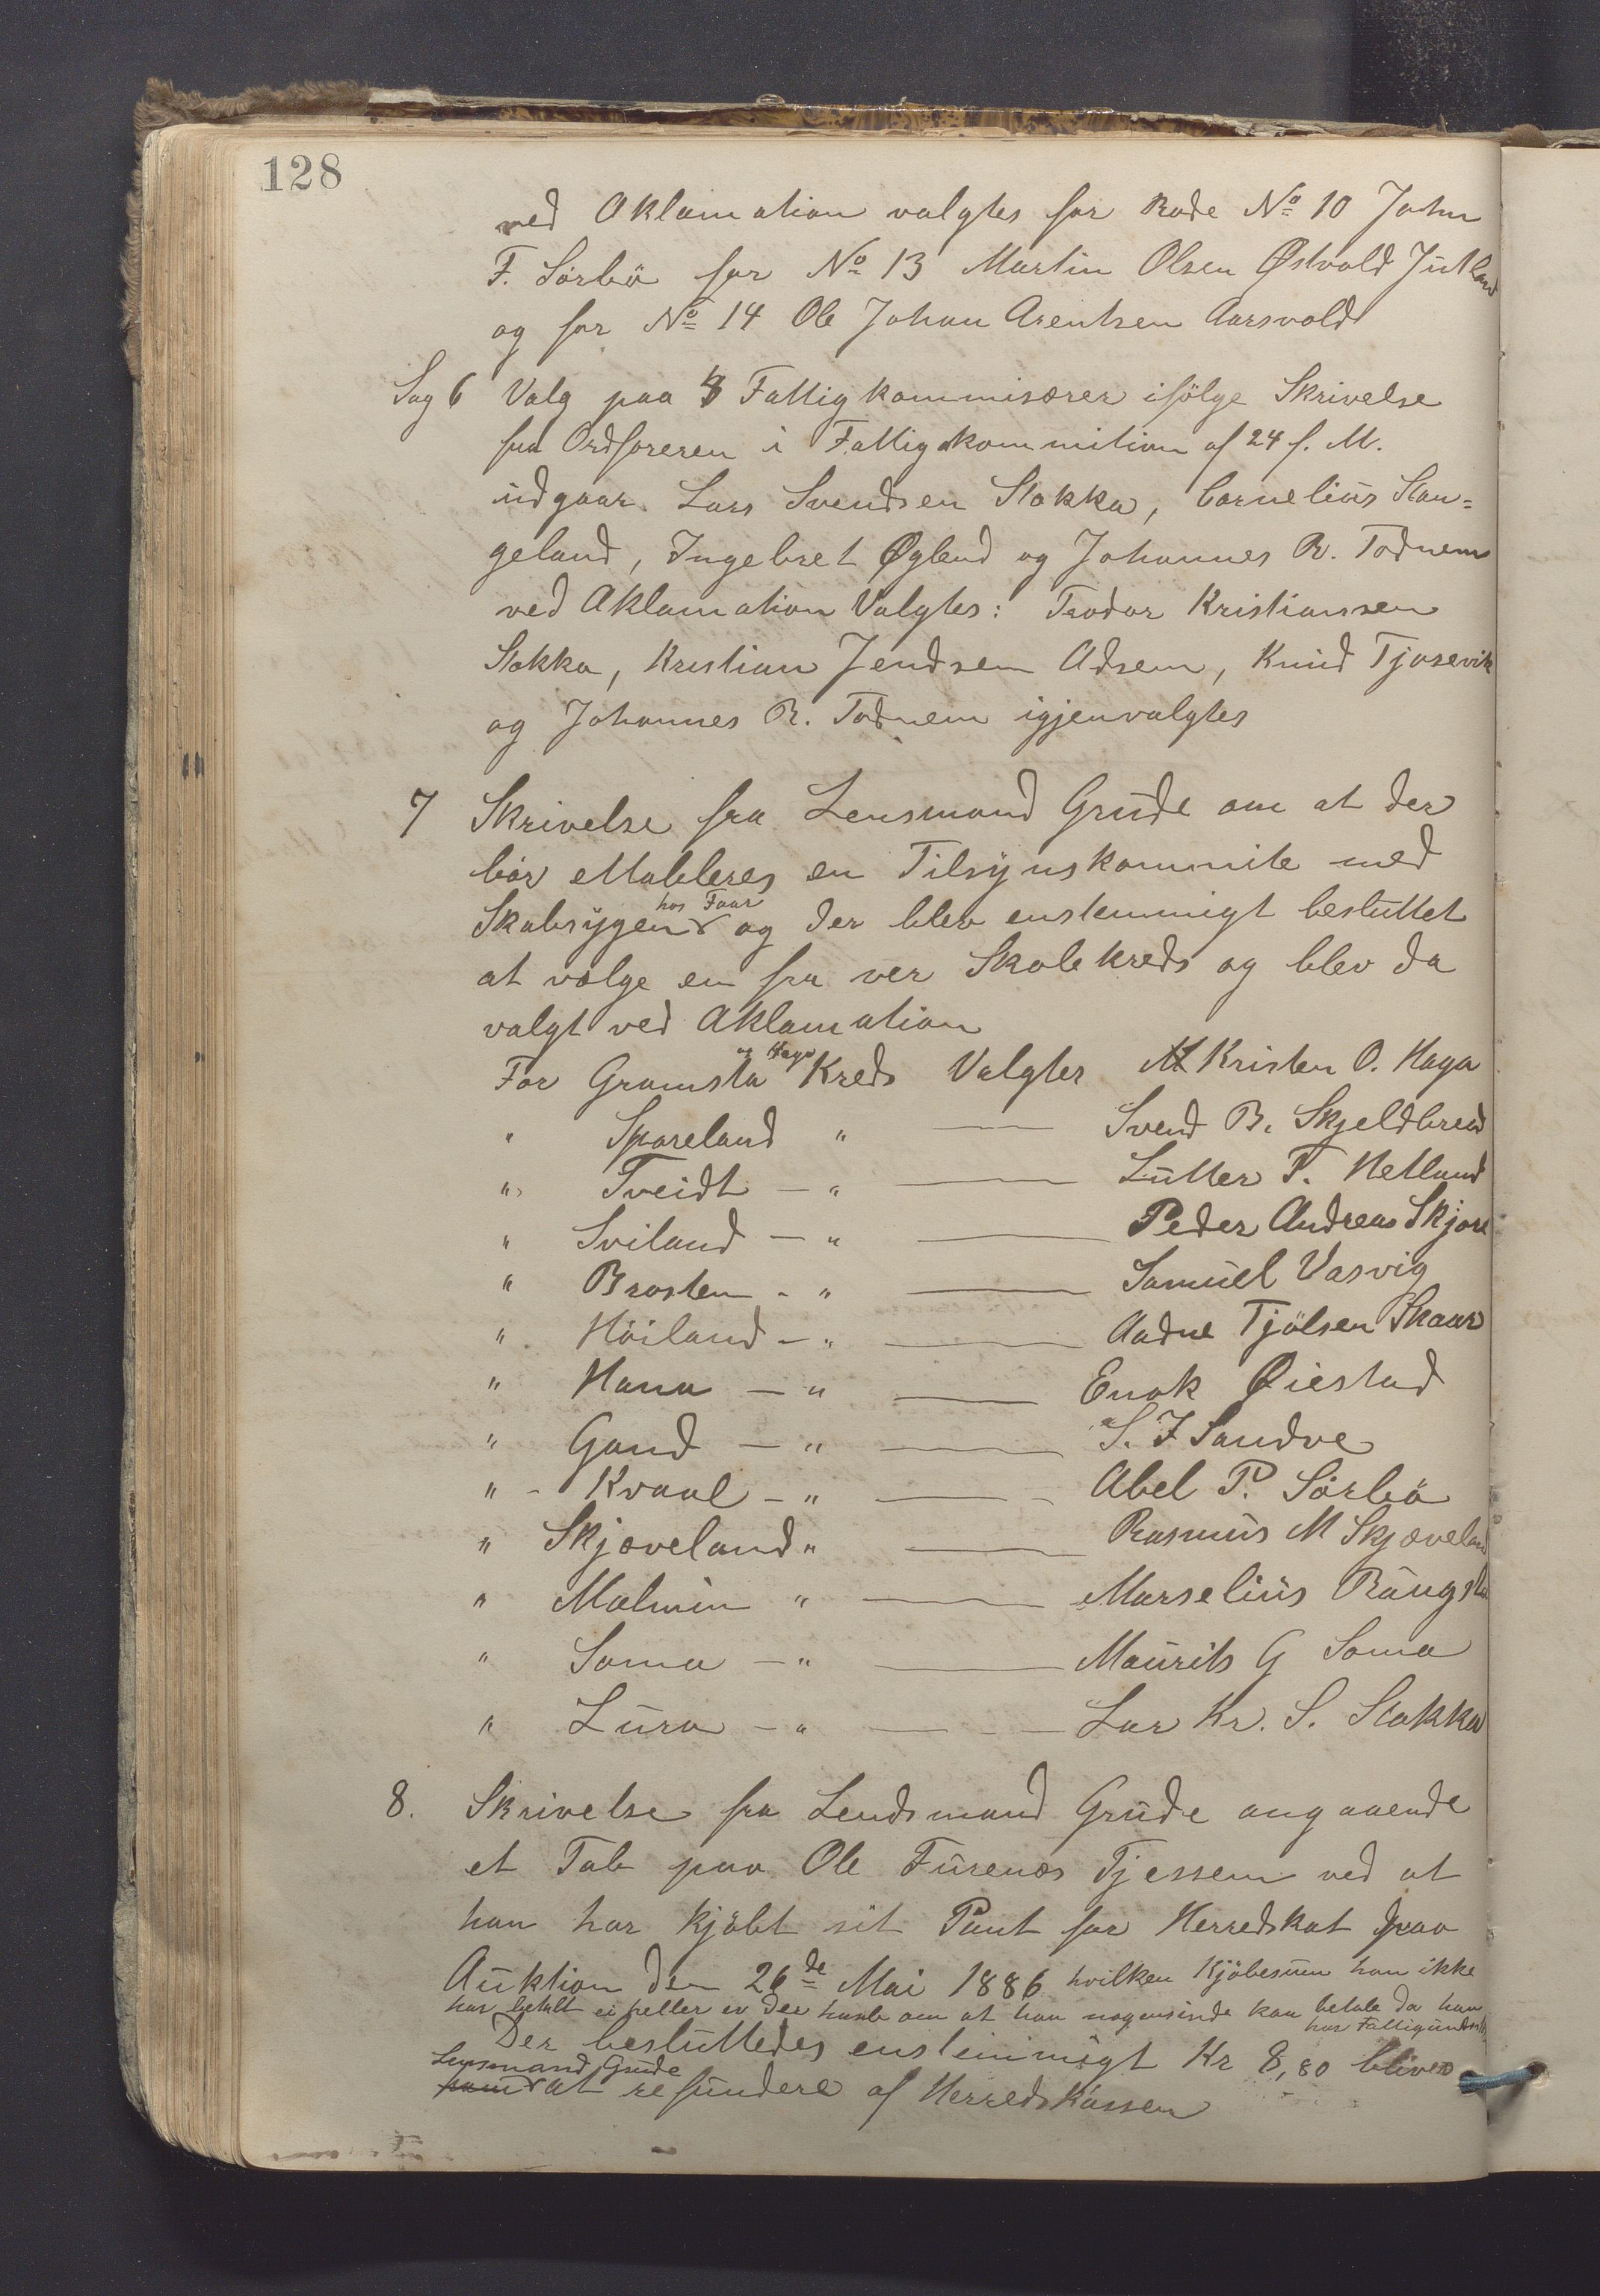 128
ved Aklamation valgtes for Rode No 10 John
F. Sörbö for No 13 Martin Olsen Østvold Jutland
og for No 14 Ole Johan Arentsen Aarsvold
Sag 6 Valg paa 4 Fattigkommisærer ifölge Skrivelse
fra Ordföreren i Fattigkommition af 24 f. M.
udgaar Lars Svendsen Stokka, Cornelius Stan=
geland, Ingebret Øglend og Johannes R. Todnem
ved Aklamation Valgtes: Teodor Kristiansen
Stokka, Kristian Jendsen Adsem, Knud Tjosevik
og Johannes R. Todnem igjenvalgtes
7 Skrivelse fra Lensmand Grude om at der
bör ettableres en Tilsynskommite med
Skabsygen hos Faar og der blev enstemmigt besluttet
at vælge en fra ver Skolekreds og blev da
valgt ved Aklamation
For Gramsta og Haga Kreds Valgtes Kristen O. Haga
" Sporeland " — Svend B. Skjeldbred
" Tveidt — " — Lutter T. Hetland
" Sviland — " — Peder Andreas Skjore
" Brosten - " — Samuel Vasvig
" Höiland — " — Aadne Tjölsen Skaar
" Hana — " — Enok Øiestad
" Gand — " — S. J Sandve
" - Kvaal — " — Abel P. Sörbö
" Skjæveland " — Rasmus M Skjæveland
" Malmin " — Marselius Raugsta
" Soma — " — Maurits G Soma
" Lura — " — Lar Kr. S. Stokka
8. Skrivelse fra Lendsmand Grude angaaende
et Tab paa Ole Furenæs Tjessem ved at
han har kjöbt sit Pant for Herredskat paa
Auktion den 26de Mai 1886 hvilken Kjöbesum han ikke
har betalt ei heller er der haab om at han nogensinde kan betale da han
har Fattigunderst
Der besluttedes enstemmigt Kr 8,80 bliver
Lensmand Grude at refundere af Herredskassen